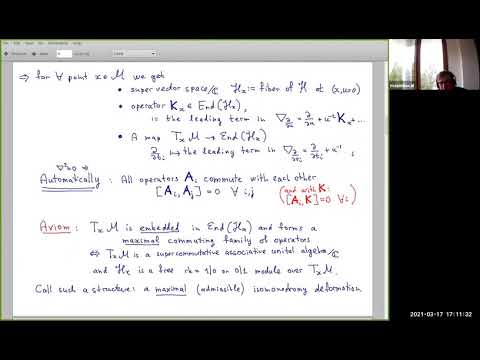 ⇒ for ∀ point x∈M we get
• super vector space/ℂ ℋₓ := fiber of ℋ at (x,u=0)
• operator Kₓ ∈ End(ℋₓ),
is the leading term in ∇_{∂/∂u} = ∂/∂u + u⁻²Kₓ+...
• A map TₓM → End(ℋₓ)
∂/∂tᵢ ↦ the leading term in ∇_{∂/∂tᵢ} = ∂/∂tᵢ + u⁻¹
∇²=0 ⇒
Automatically: All operators Aᵢ commute with each other
[Aᵢ,Aⱼ]=0 ∀i,j
(and with K:
[Aᵢ,K]=0 ∀i)
Axiom: TₓM is embedded in End(ℋₓ) and forms a
maximal commuting family of operators
⇔ TₓM is a supercommutative associative unital algebra/ℂ
and ℋₓ is a free rk = 1/0 or 0/1 module over TₓM.
Call such a structure: a maximal (admissible) isomonodromy deformation
2021-03-17 17:11:32